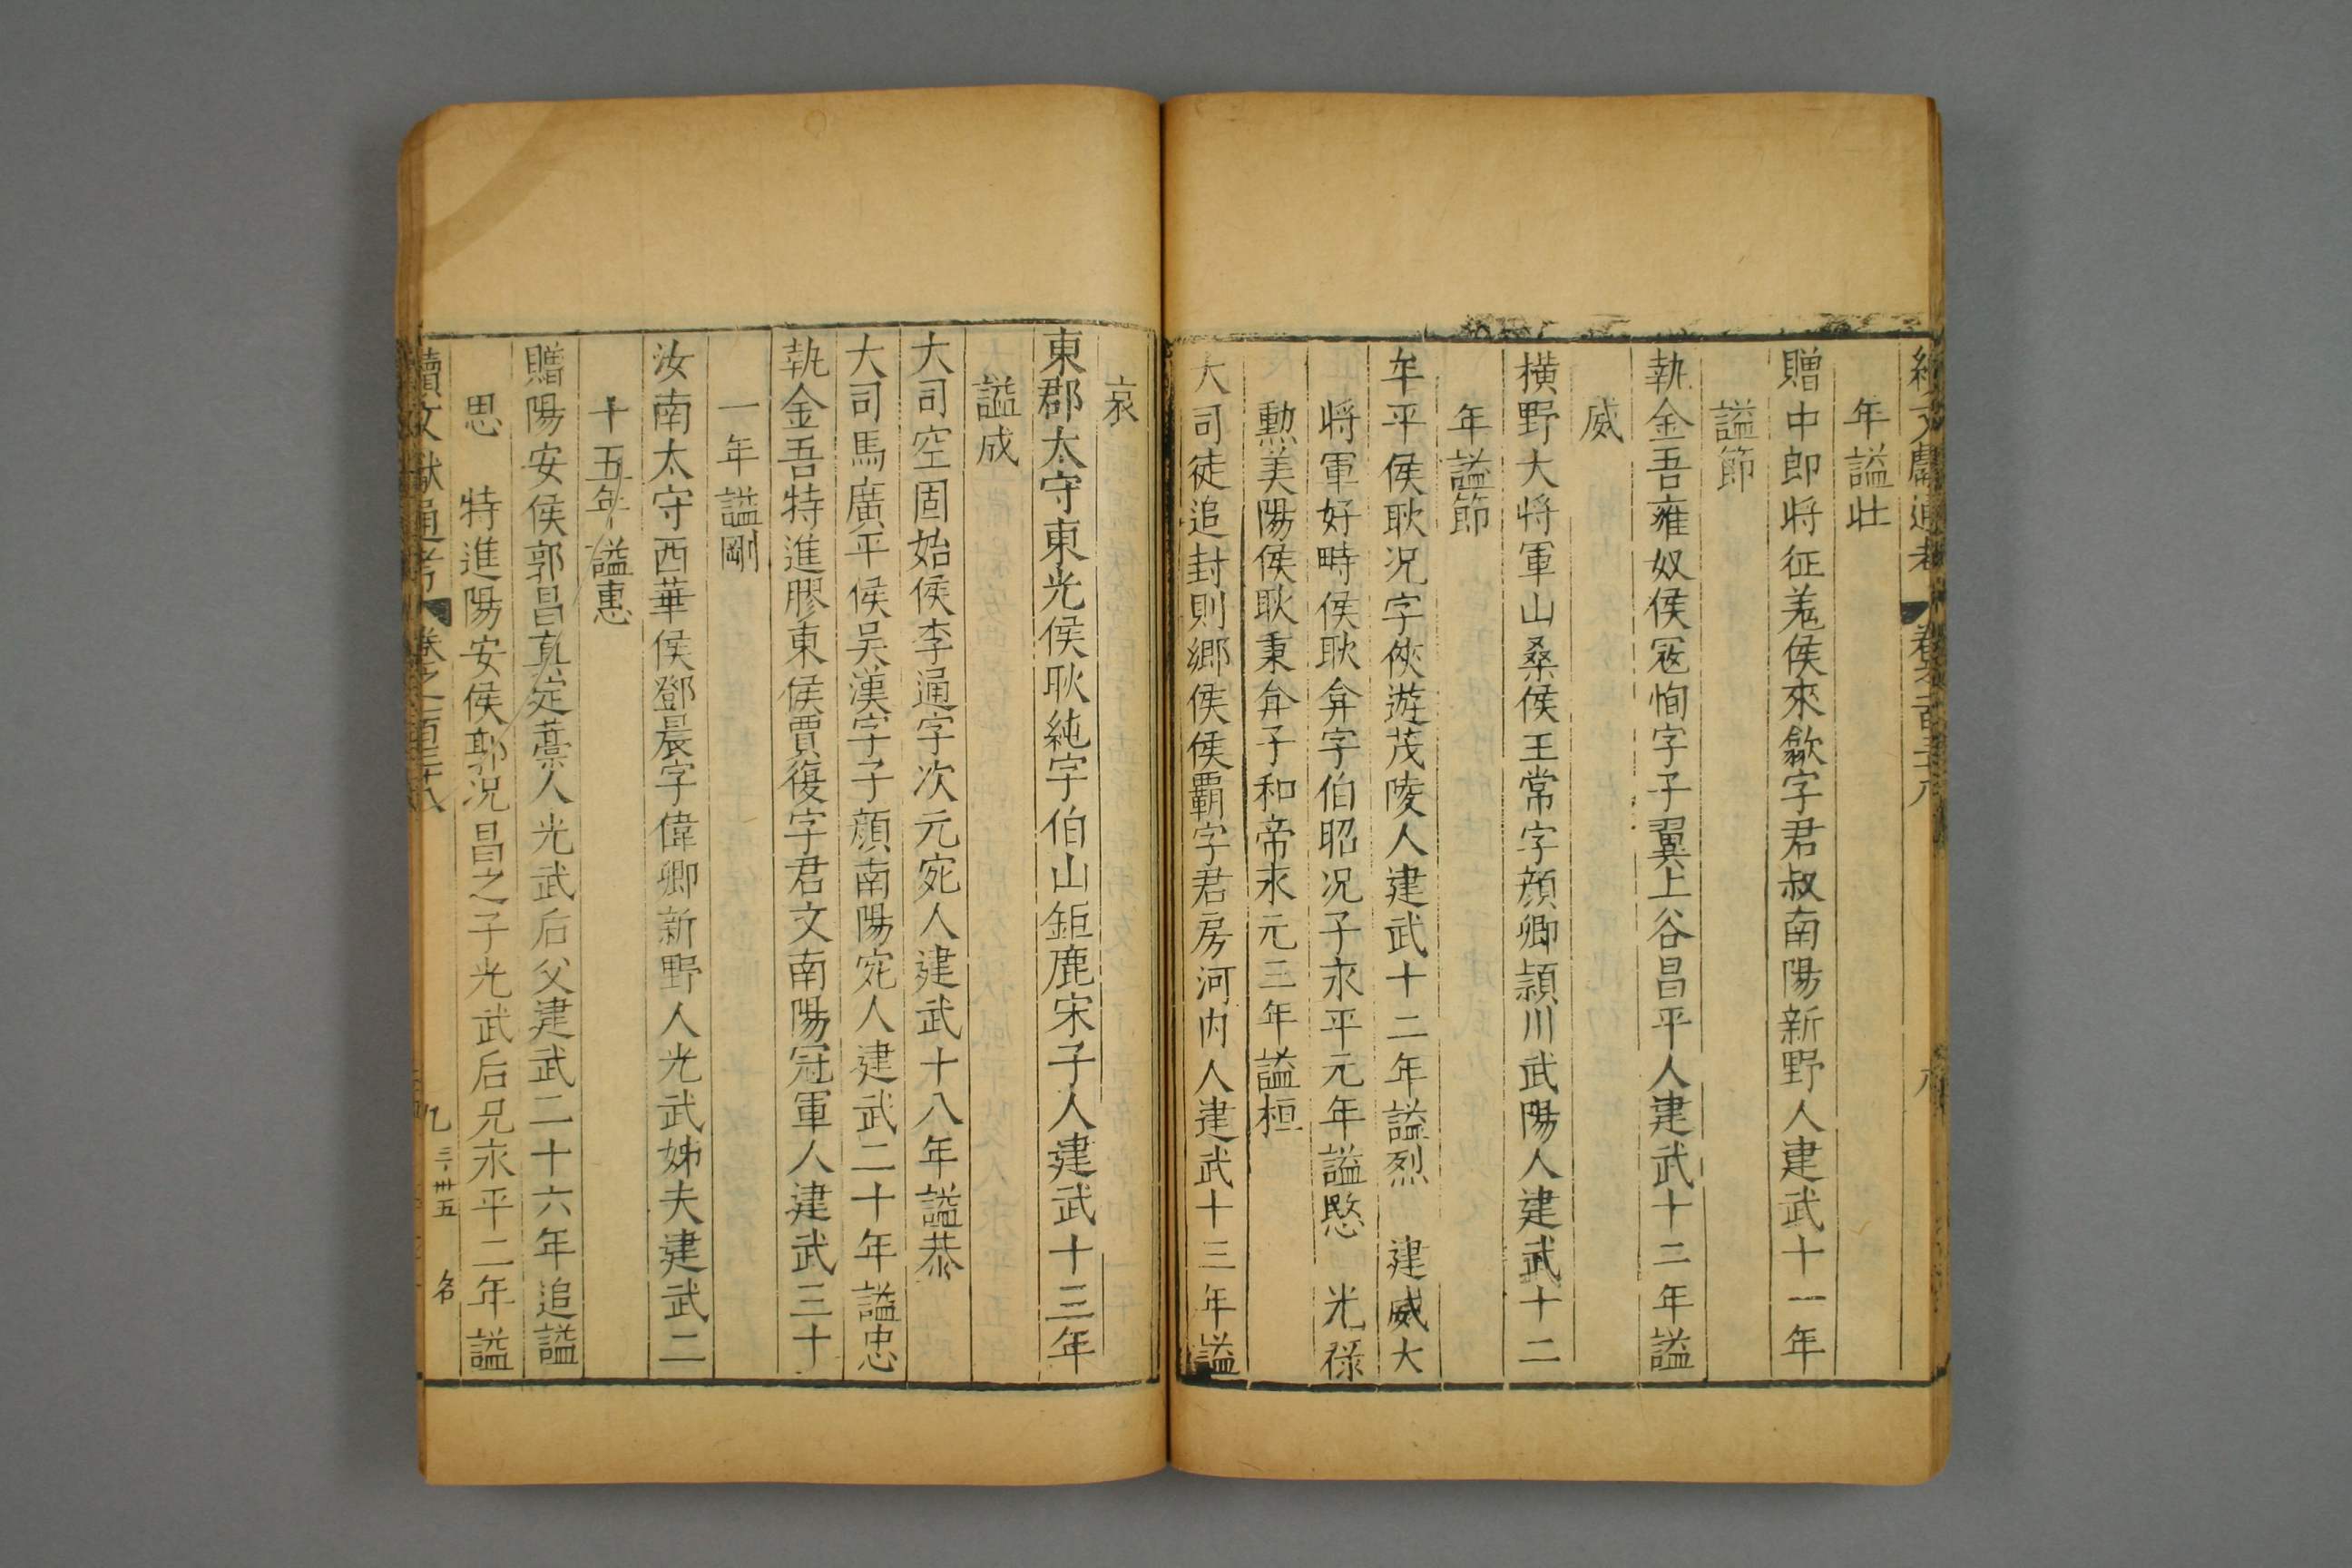 年諡壯
贈中郎將征羌侯來歙字君叔南陽新野人建武十一年
諡節
執金吾雍奴侯寇恂字子翼上谷昌平人建武十二年諡
威
橫野大將軍山桑侯王常字顏卿潁川武陽人建武十二
年諡節
牟平侯耿况字俠遊茂陵人建武十二年諡烈 建威大
將軍好畤侯耿弇字伯昭况子永平元年諡愍 光祿
勳美陽侯耿秉弇子和帝永元三年諡桓
大司徒追封則鄉侯侯霸字君房河内人建武十三年諡
哀
東郡太守東光侯耿純字伯山鉅鹿宋子人建武十三年
諡成
大司空固始侯李通字次元宛人建武十八年諡恭
大司馬廣平侯吳漢字子顏南陽宛人建武二十年諡忠
執金吾特進膠東侯賈復字君文南陽冠軍人建武三十
一年諡剛
汝南太守西華侯鄧晨字偉卿新野人光武姊夫建武二
十五年諡惠
贈陽安侯郭昌真定藁人光武后父建武二十六年追諡
思 特進陽安侯郭况昌之子光武后兄永平二年諡
續文獻通考 卷之一百三十八